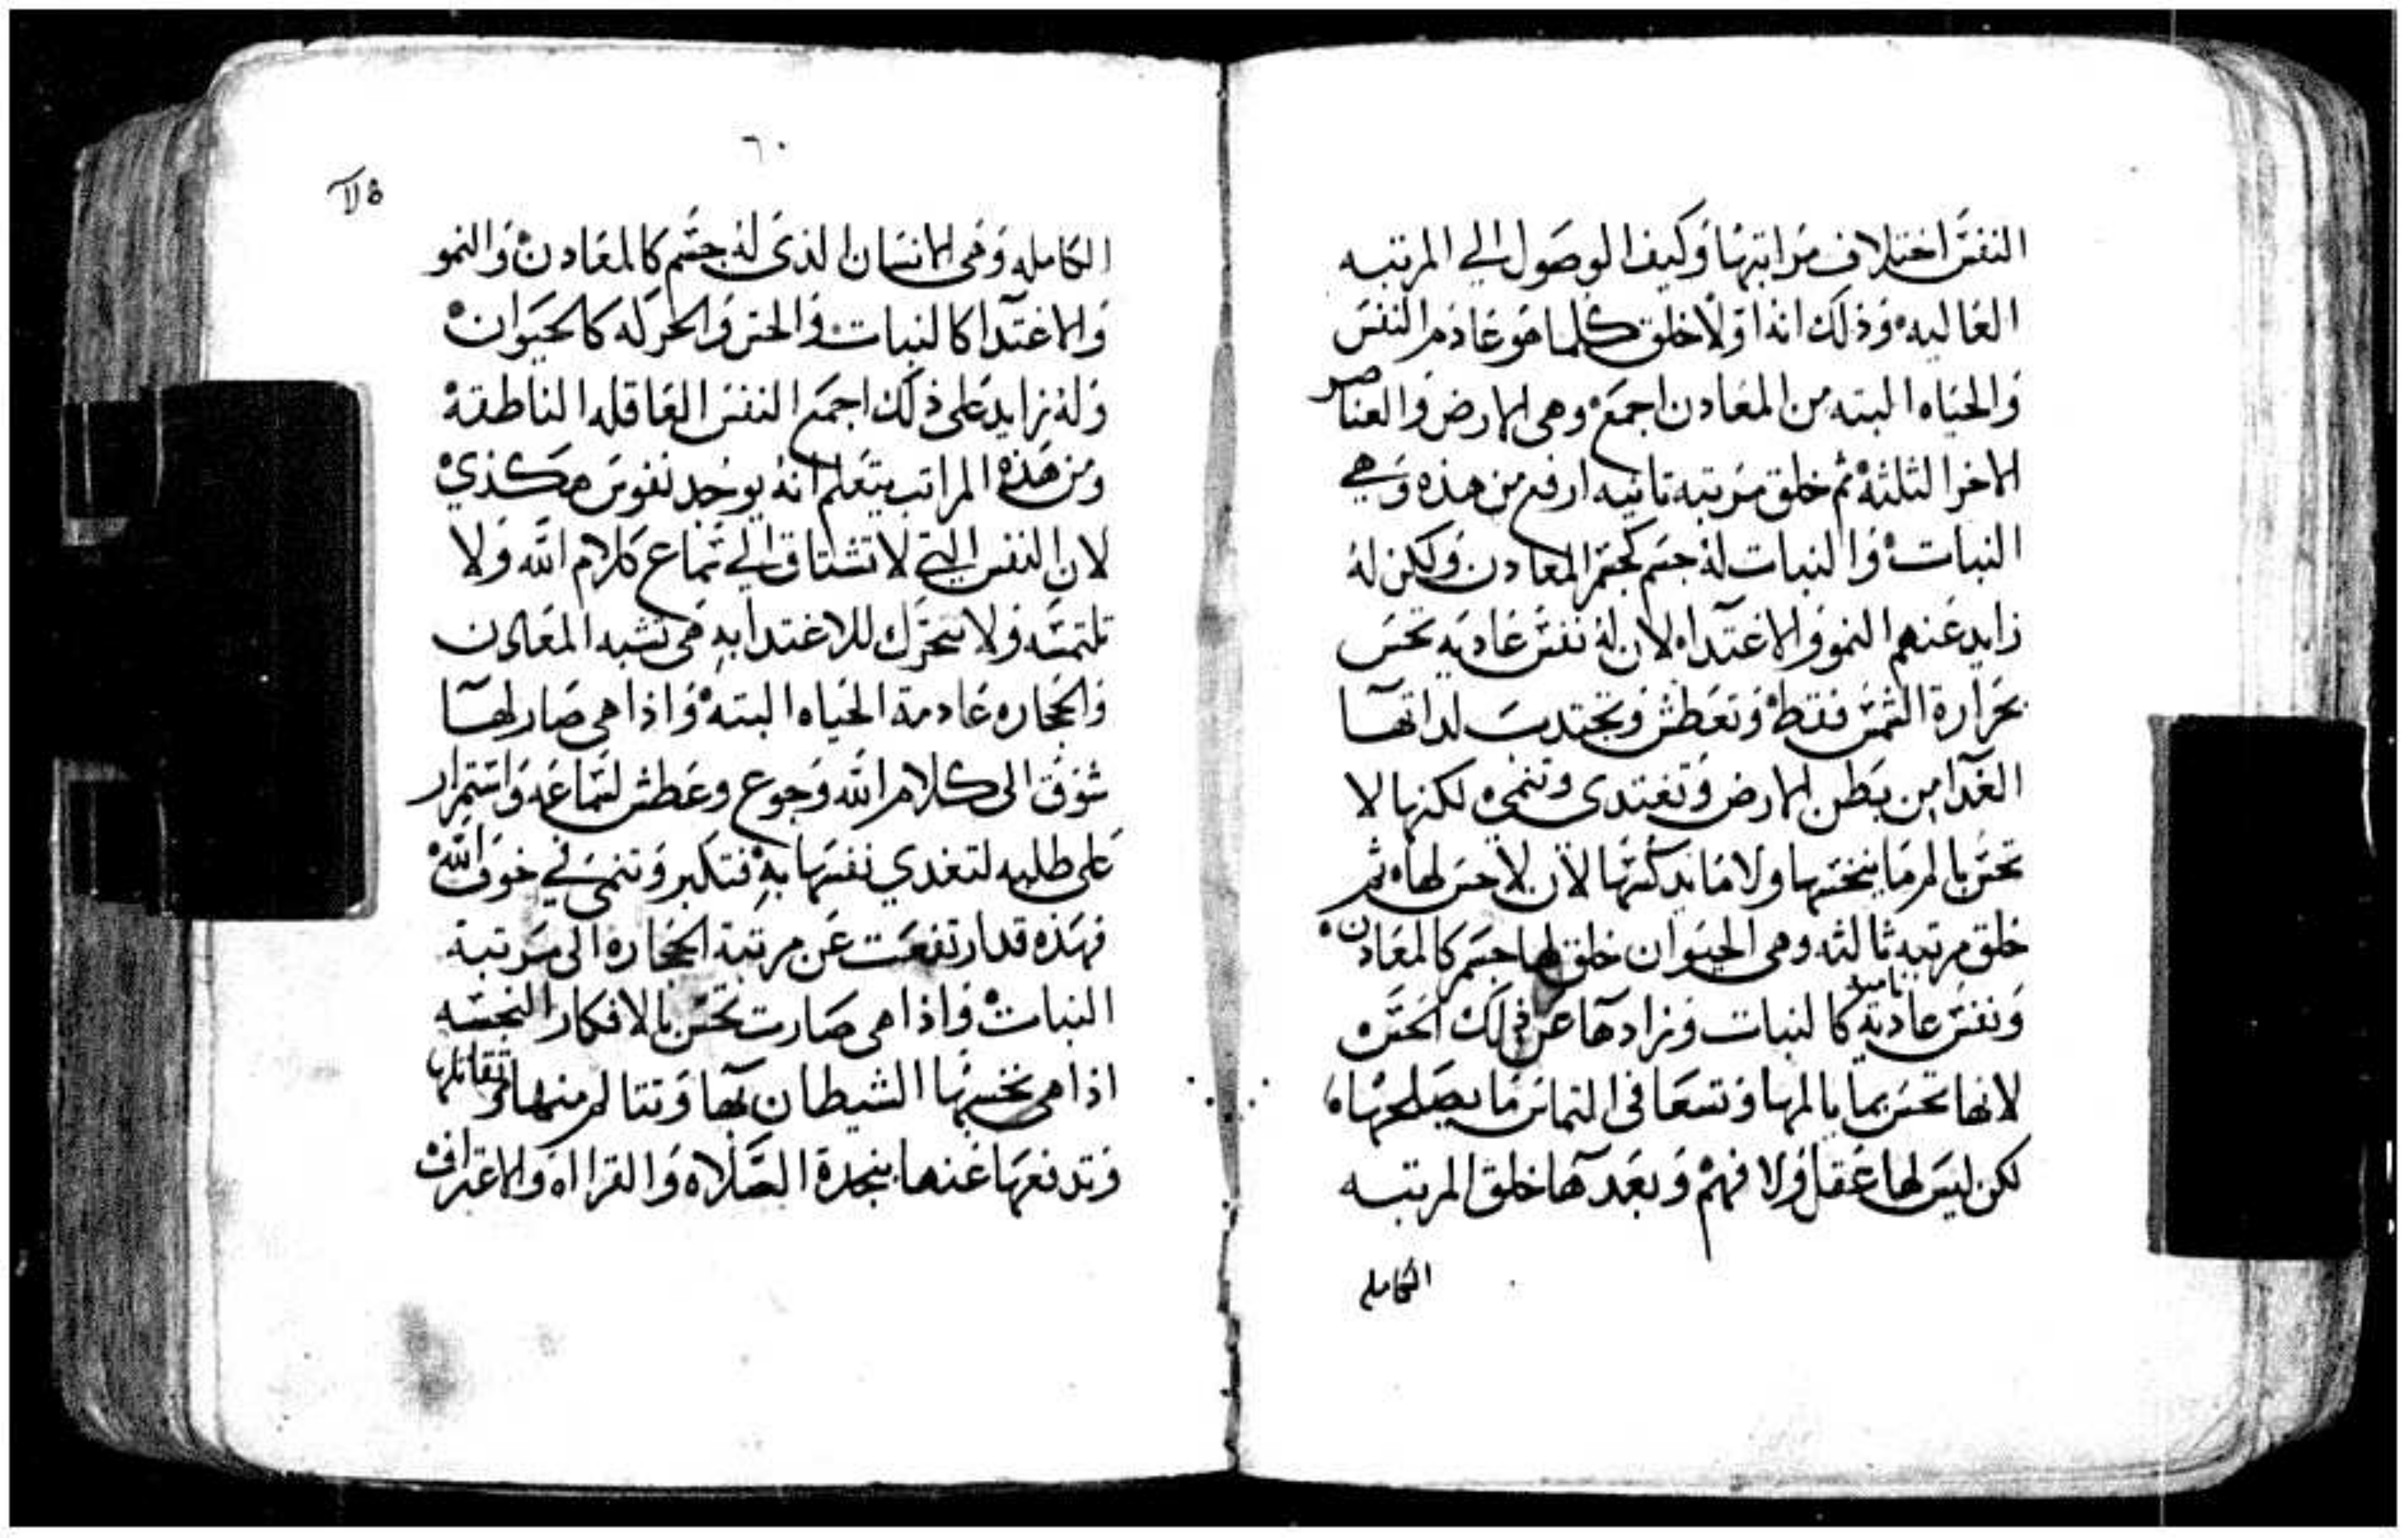 النفس اختلاف مراتبها وكيف الوصول الي المرتبه
العاليه وذلك انه اولا خلق كلما هو عادم النفس
والحياه البته من المعادن اجمع وهى الارض والعناصر
الاخر الثلثة ثم خلق مرتبه تانيه ارفع من هذه وهي
النبات والنبات له جسم كجسم المعادن ولكن له
زايد عنهم النمو والاغتدا لان له نفس غاديه تحس
بحرارة الشمس فقط وتعطش وتجتدب لداتها
الغدا من بطن الارض وتغتدى وتنمى لكنها لا
تحس بالم ما ينخسها ولا ما يدكسها لان لا حس لها ثم
خلق مرتبه ثالثه وهى الحيوان خلق لها جسم كالمعادن
ونفس غاديه ناميه كالنبات وزادها عن ذلك الحس
لانها تحس بما يالمها وتسعا فى التماس ما يصلحها
لكن ليس لها عقل ولا فهم وبعدها خلق المرتبه
الكامله
٦٠
الكامله وهى الانسان الذى له جسم كالمعادن والنمو
والاغتدا كالنبات والحس والحركه كالحيوان
وله زايد على ذلك اجمع النفس العاقله الناطقة
ومن هذه المراتب يتعلم انه يوجد نفوس هكذي
لان النفس التي لا تشتاق الي سماع كلام الله ولا
تلتمسه ولا تتحرك للاغتدا به هى تشبه المعادن
والحجاره عادمة الحياه البته واذا هى صار لها
شوق الى كلام الله وجوع وعطش لسماعه واستمرار
على طلبه لتغدي نفسها به فتكبر وتنمى في خوف الله
فهذه قد ارتفعت عن مرتبة الحجاره الى مرتبة
النبات واذا هى صارت تحس بالافكار النجسه
اذا هى نخسها الشيطان بها وتتالم منها وتقاتلها
وتدفعها عنها بنجدة الصلاه والقرااه والاعتراف